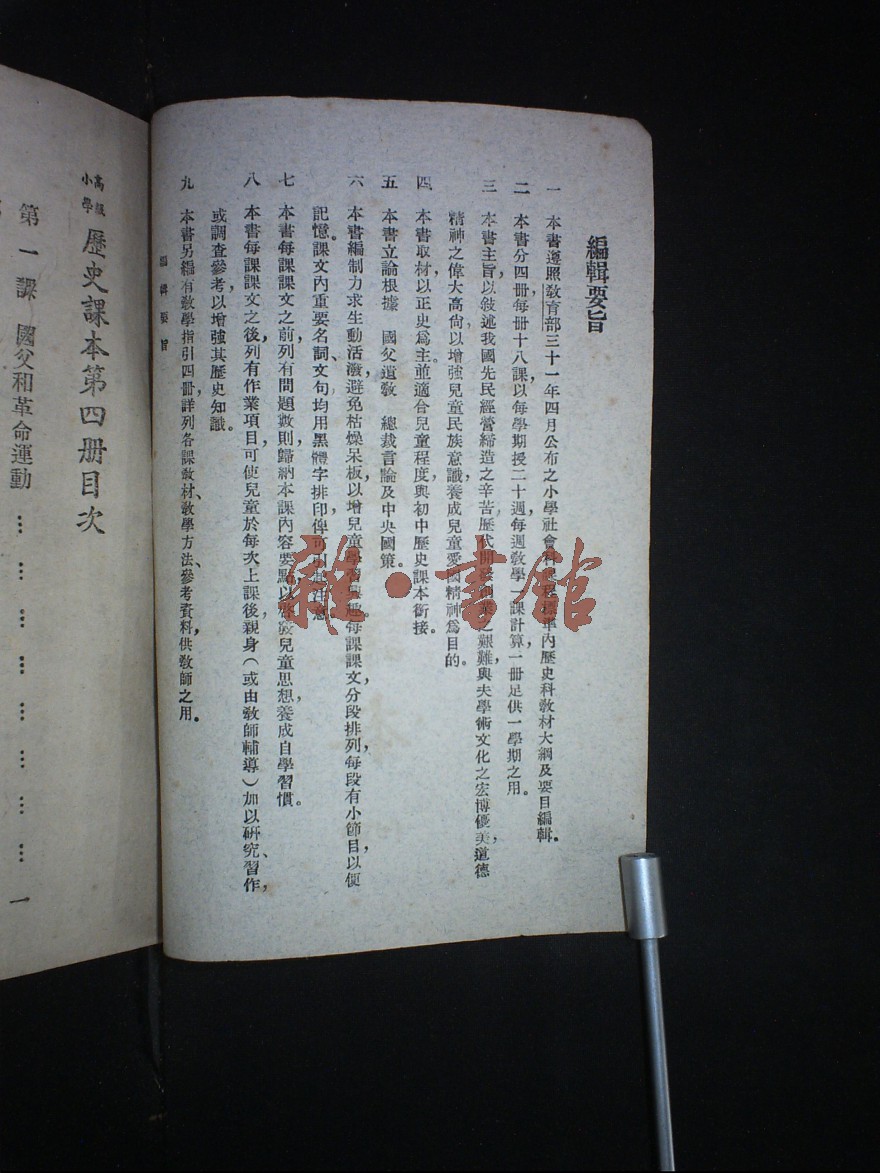 編輯要旨
一 本書遵照教育部三十一年四月公布之小學社會科課程標準內歷史科教材大綱及要目編輯。
二 本書分四册，每册十八課，以每學期授二十週，每週教學一課計算，一册足供一學期之用。
三 本書主旨，以敍述我國先民經營締造之辛苦，歷代開發創業之艱難與夫學術文化之宏博優美，道德
精神之偉大高尙，以增強兒童民族意識，養成兒童愛國精神爲目的。
四 本書取材，以正史爲主，並適合兒童程度，與初中歷史課本銜接。
五 本書立論，根據 國父遺敎 總裁言論及中央國策。
六 本書編制，力求生動活潑，避免枯燥呆板，以增兒童學習興趣。每課課文，分段排列，每段有小節目，以便
記憶。課文內重要名詞、文句，均用黑體字排印，俾可引起注意。
七 本書每課課文之前，列有問題數則，歸納本課內容要點，以啓發兒童思想，養成自學習慣。
八 本書每課課文之後，列有作業項目，可使兒童於每次上課後，親身（或由敎師輔導）加以硏究、習作，
或調查參考，以增強其歷史知識。
九 本書另編有敎學指引四册，詳列各課敎材、敎學方法、參考資料，供敎師之用。
編輯要旨
高級
小學
歷史課本第四册目次
第一課 國父和革命運動 ………………… 一
雜·書館